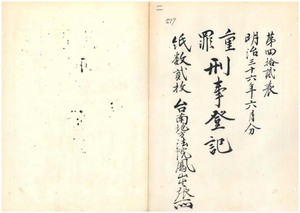 第四拾貳表
明治三十六年六月分
重罪 刑事登記
紙数貳枚
台南地方法院鳳山出張所
二